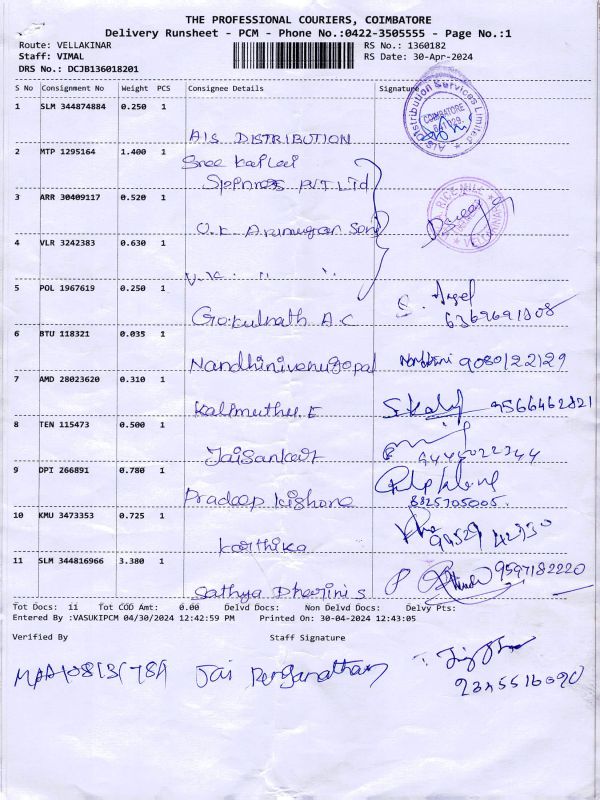 THE PROFESSIONAL COURIERS, COIMBATORE
Delivery Runsheet - PCM - Phone No.:0422-3505555 - Page No.:1
Route: VELLAKINAR RS No.: 1360182
Staff: VIMAL RS Date: 30-Apr-2024
DRS No.: DCJB136018201
S No Consignment No Weight PCS Consignee Details Signature
1 SLM 344874884 0.250 1 AIS DISTRIBUTION
AIS Distribution Services Limited
COIMBATORE
2 MTP 1295164 1.400 1 Sree Kailai
Spinners PVT Ltd
3 ARR 30409117 0.520 1 V.K. Arumugam Sons
RICE MILL
4 VLR 3242383 0.630 1 V.K. " "
5 POL 1967619 0.250 1 Gokulnath A.C
6 BTU 118321 0.035 1 Nandhinivenugopal 9080122129
7 AMD 28023620 0.310 1 Kalimuthu.E 9566462821
8 TEN 115473 0.500 1 Jaisankar 9444022344
9 DPI 266891 0.780 1 Pradeep Kishore
8825705005.
10 KMU 3473353 0.725 1 Karthika
11 SLM 344816966 3.380 1 Sathya Dharini S 9597182220
Tot Docs: 11 Tot COD Amt: 0.00 Delvd Docs: Non Delvd Docs: Delvy Pts:
Entered By :VASUKIPCM 04/30/2024 12:42:59 PM Printed On: 30-04-2024 12:43:05
Verified By Staff Signature
Jai Renganathan